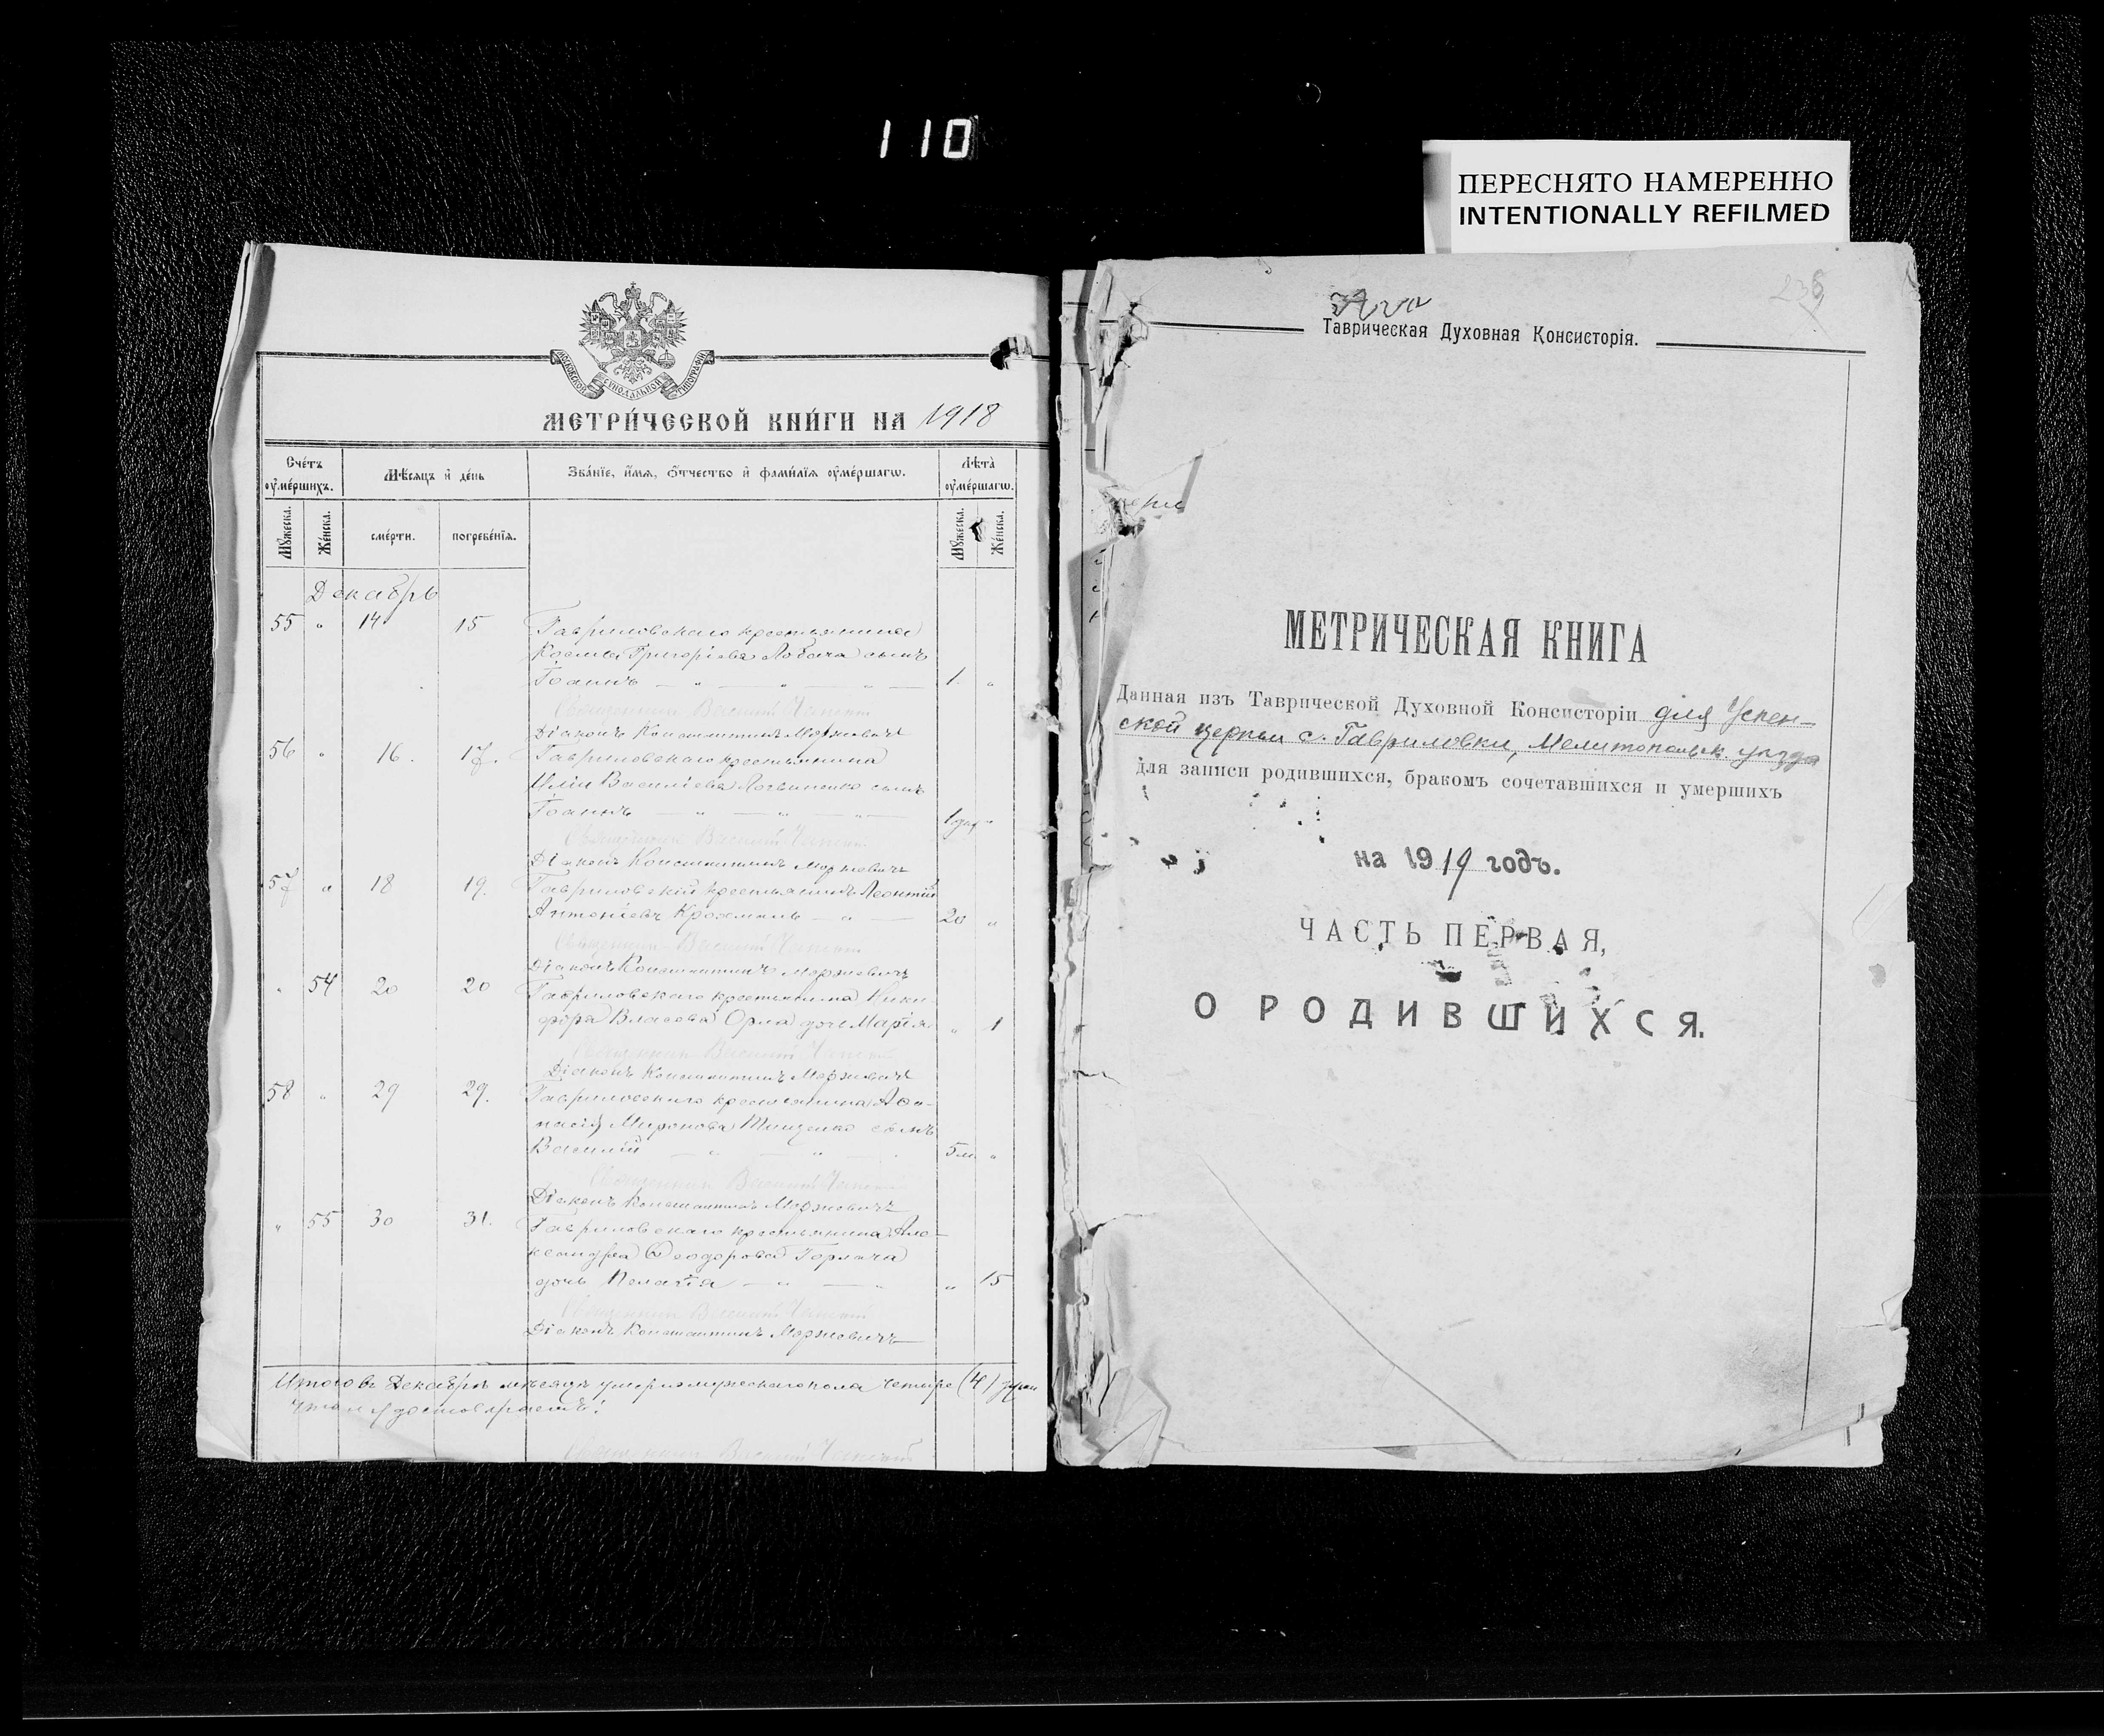 110
ПЕРЕСНЯТО НАМЕРЕННО
INTENTIONALLY REFILMED
МОСКОВСКОЙ СѴНОДАЛЬНОЙ ТИПОГРАФІИ
МЕТРИ́ЧЕСКОЙ КНИ́ГИ НА 1918
Сче́тъ оу҆ме́ршихъ.
Мѣ́сѧцъ и҆ де́нь
Зва́нїе, и҆́мѧ, ѻ҆́тчество и҆ фами́лїѧ оу҆ме́ршагѡ.
Лѣ́та̀ оу҆ме́ршагѡ.
Мꙋ́жеска.
Же́нска.
сме́рти.
погребе́нїѧ.
Мꙋ́жеска.
Же́нска.
Декабрь
55 " 14 15 Гавриловскаго крестьянина
Космы Григоріева Лобача сынъ
Іоаннъ — " — " — " — 1. "
Священникъ Василій
Діаконъ Константинъ Маржевичъ
56 " 16. 17. Гавриловскаго крестьянина
Иліи Василіева Логвиненко сынъ
Іоаннъ — " — " — " — 1 дня "
Священникъ Василій
Діаконъ Константинъ Маржевичъ
57 " 18 19. Гавриловскій крестьянинъ Леонтій
Антоніевъ — " — 20 "
Священникъ Василій
Діаконъ Константинъ Маржевичъ
" 54 20 20 Гавриловскаго крестьянина Ники-
фора Власова Орла дочь Марія " 1
Священникъ Василій
Діаконъ Константинъ Маржевичъ
58 " 29 29. Гавриловскаго крестьянина Аѳа-
насія Миронова Тищенко сынъ
Василій — " — " — 5 м. "
Священникъ Василій
Діаконъ Константинъ Маржевичъ
" 55 30 31. Гавриловскаго крестьянина Але-
ксандра Ѳеодорова Горлача
дочь Пелагія — " — " " 15
Священникъ Василій
Діаконъ Константинъ Маржевичъ
Итого въ Декабрѣ мѣсяцѣ умерло мужескаго пола четыре (4)
Священникъ Василій
236
Таврическая Духовная Консисторія.
МЕТРИЧЕСКАЯ КНИГА
Данная изъ Таврической Духовной Консисторіи для Успен-
ской церкви с. Гавриловки, Мелитопольск. уѣзда
для записи родившихся, бракомъ сочетавшихся и умершихъ
на 1919 годъ.
ЧАСТЬ ПЕРВАЯ,
О РОДИВШИХСЯ.